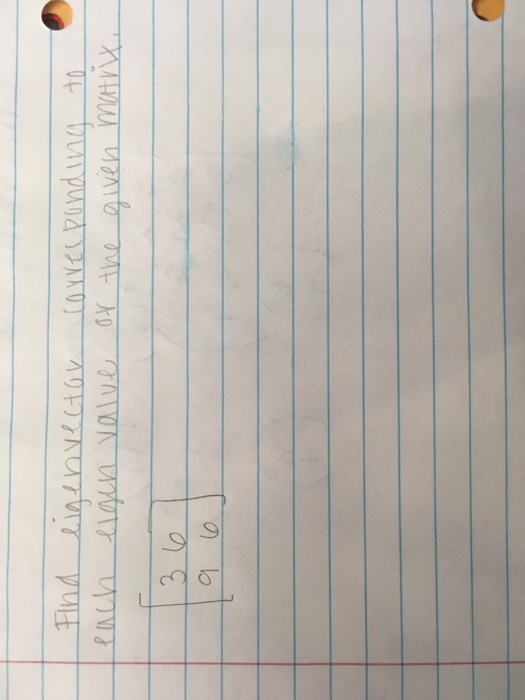 Find eigenvector corresponding to
each eigen value of the given matrix.
3 6
9 6